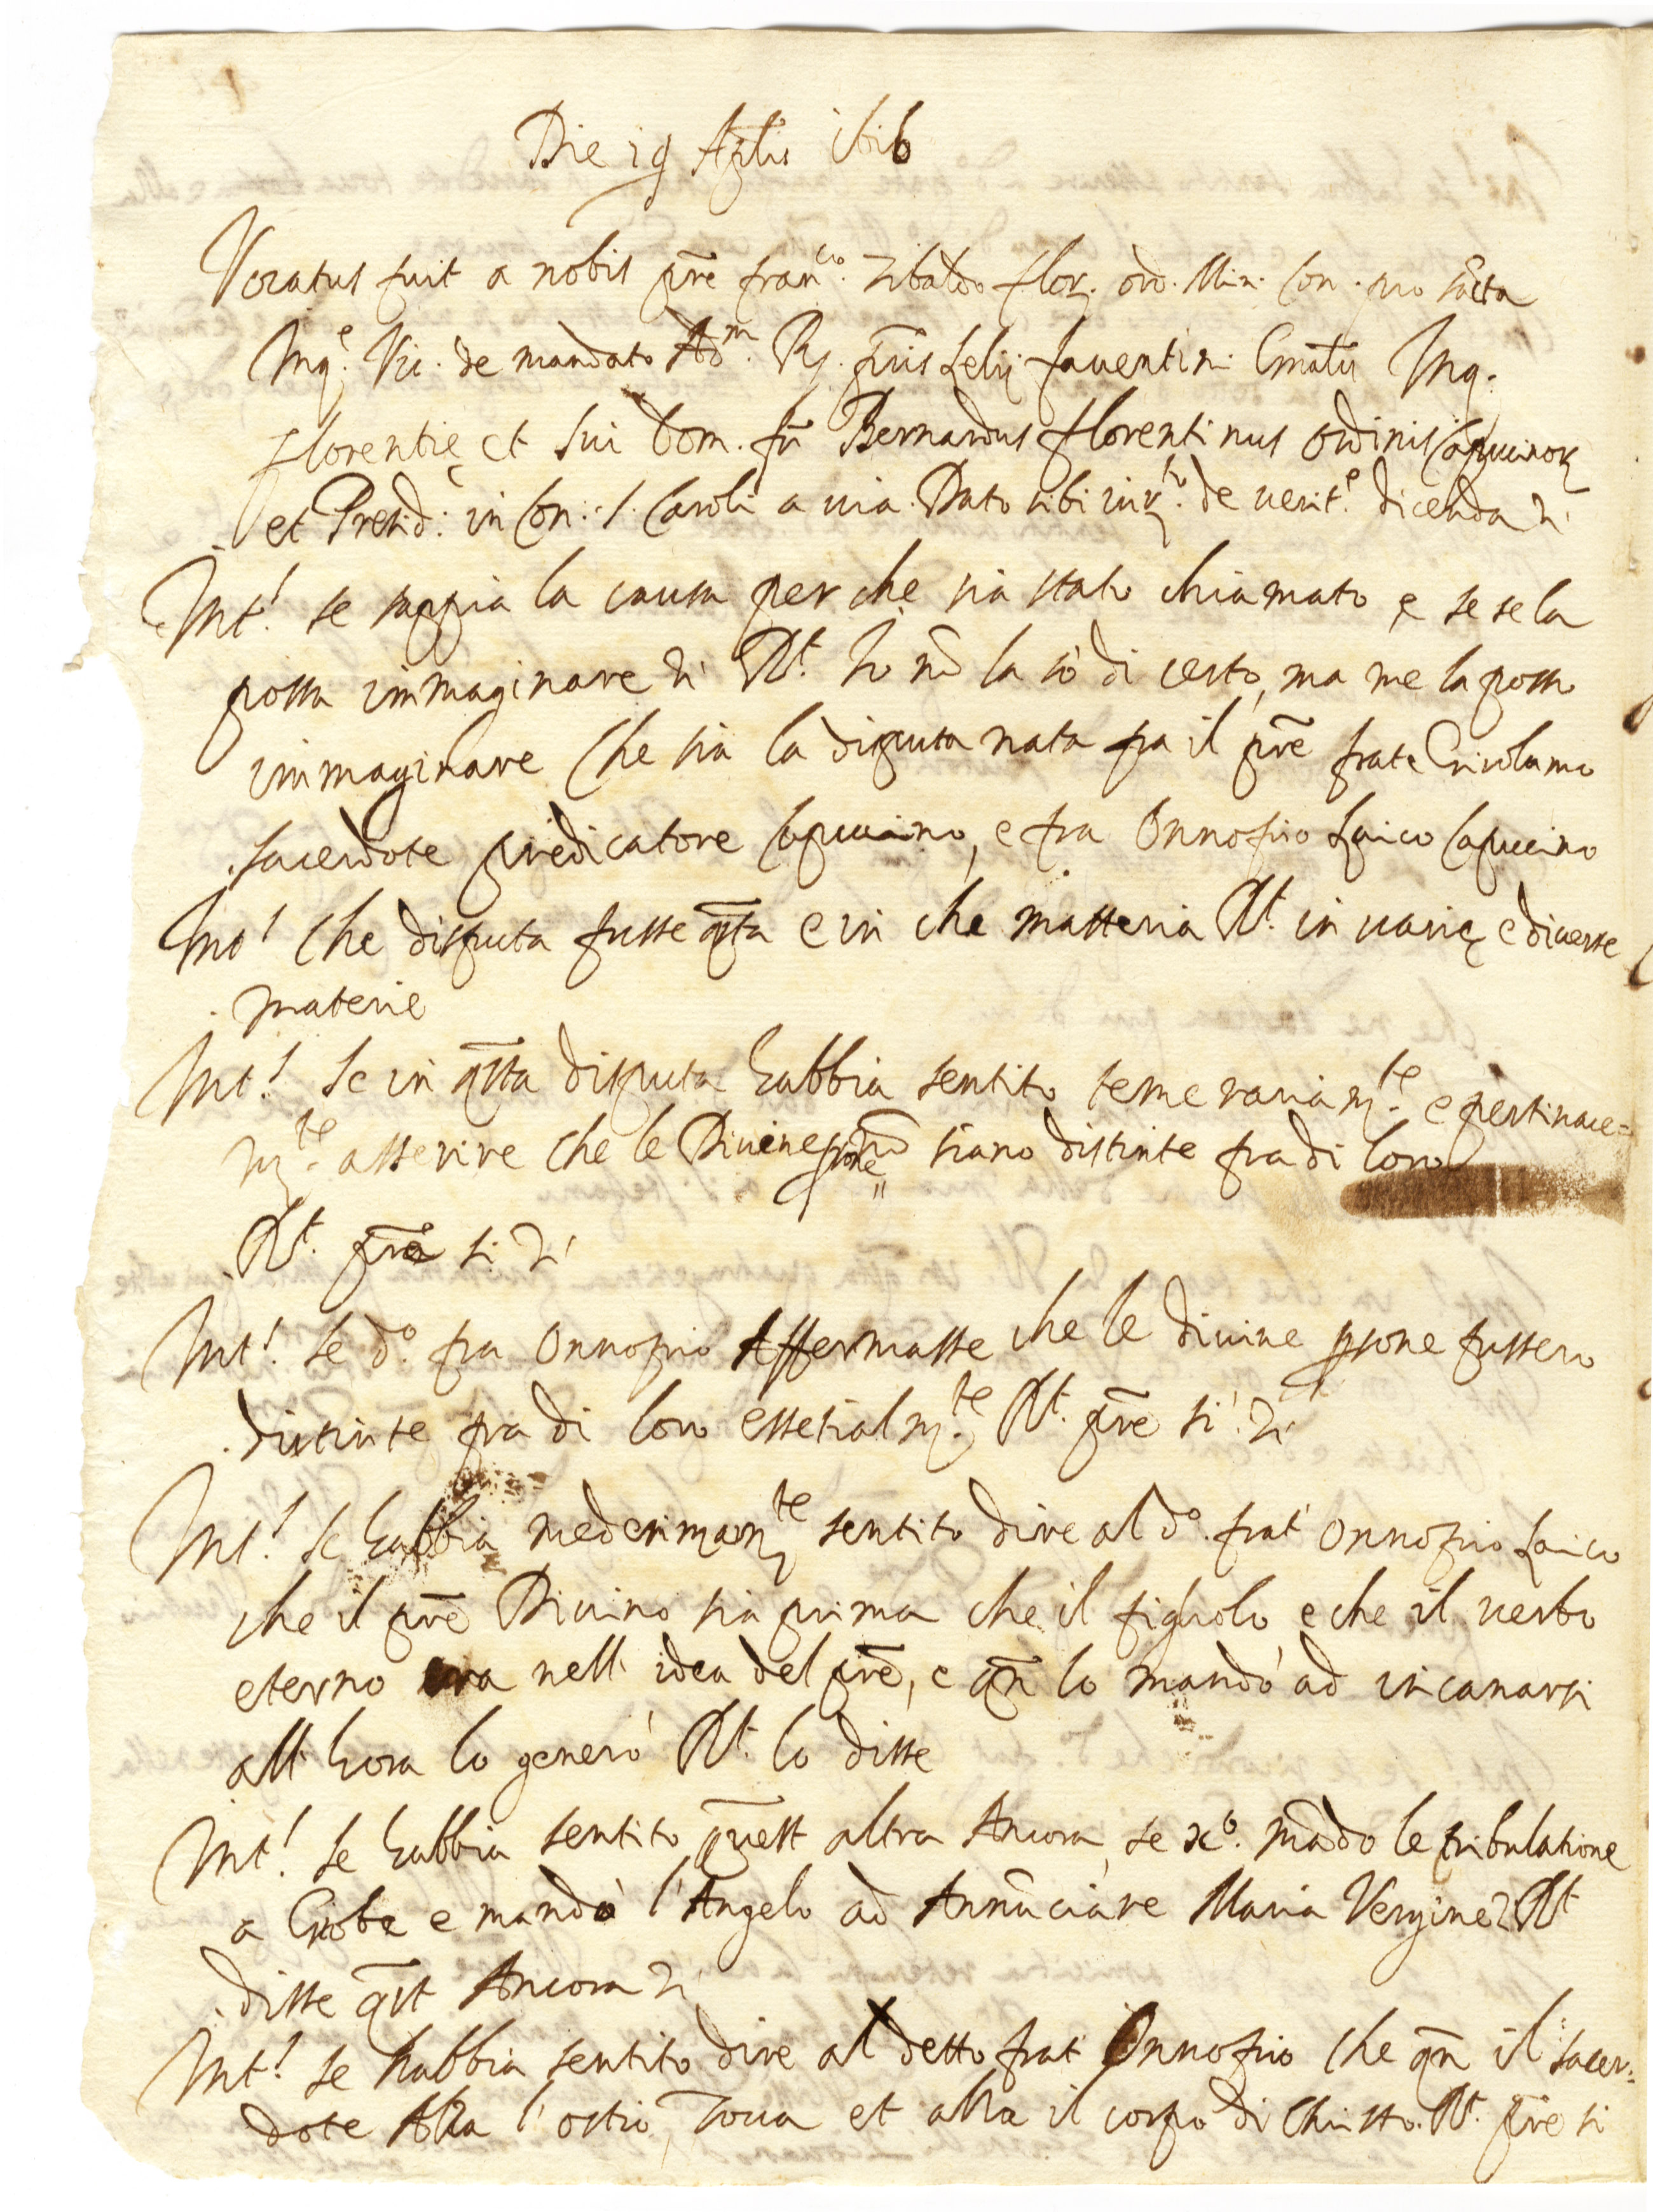 Die 19 Aplis 1616
Vocatus fuit a nobis pre Franco. Tibaldo flor. ord. Min. Con. pro sacta
Inqe. Vic. de mandato Adm. R. pris Lelij faventini Gnalis Inq.
Florentie et sui dom. fr Bernardus florentinus ordinis Capuccinor
et Presid: in Con: S. Caroli a via. Dato sibi iur.to de verit.e dicenda
Int! se sappia la causa perche sia stato chiamato e se se la
possa immaginare Rt. Io nō la sò di certo, ma me la posso
immaginare che sia la disputa nata fra il pre frate Girolamo
sacerdote predicatore Capuccino, e fra Onnofrio Laico Capuccino
Int! che disputa fusse qsta e in che matteria Rt. in varie e diverse
materie
Int! Se in qsta disputa habbia sentito temerariam.te e pertinace=
m.te asserire che le Divine psone siano distinte fra di loro
Rt. pre si
Int! se do. fra Onnofrio Affermasse che le divine psone fussero
distinte fra di loro essetialm.te Rt. pre si
Int! se habbia medesimam.te sentito dire al do. frat' Onnofrio Laico
che il pre Divino sia prima che il figliolo e che il verbo
eterno era nell' idea del pre, e qn lo mandò ad incanarsi
all' hora lo generò Rt. lo disse
Int! se habbia sentito quest altra Ancora, se xo. mādo le tribulatione
a Giobe e mandò l'Angelo ad Annūciare Maria Vergine Rt
disse qst Ancora
Int! se habbia sentito dire al detto frat' Onnofrio che qn il sacer=
dote Alza l'ostio, tocca et alza il corpo di Christo. Rt. pre si